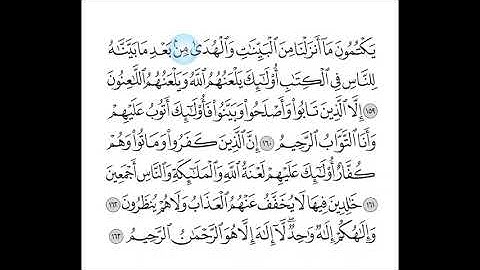 يَكْتُمُونَ مَآ أَنزَلْنَا مِنَ ٱلْبَيِّنَـٰتِ وَٱلْهُدَىٰ مِنۢ بَعْدِ مَا بَيَّنَّـٰهُ
لِلنَّاسِ فِى ٱلْكِتَـٰبِ أُو۟لَـٰٓئِكَ يَلْعَنُهُمُ ٱللَّهُ وَيَلْعَنُهُمُ ٱللَّـٰعِنُونَ
١٥٩ إِلَّا ٱلَّذِينَ تَابُوا۟ وَأَصْلَحُوا۟ وَبَيَّنُوا۟ فَأُو۟لَـٰٓئِكَ أَتُوبُ عَلَيْهِمْ
وَأَنَا ٱلتَّوَّابُ ٱلرَّحِيمُ ١٦٠ إِنَّ ٱلَّذِينَ كَفَرُوا۟ وَمَاتُوا۟ وَهُمْ
كُفَّارٌ أُو۟لَـٰٓئِكَ عَلَيْهِمْ لَعْنَةُ ٱللَّهِ وَٱلْمَلَـٰٓئِكَةِ وَٱلنَّاسِ أَجْمَعِينَ
١٦١ خَـٰلِدِينَ فِيهَا لَا يُخَفَّفُ عَنْهُمُ ٱلْعَذَابُ وَلَا هُمْ يُنظَرُونَ ١٦٢
وَإِلَـٰهُكُمْ إِلَـٰهٌ وَٰحِدٌ ۖ لَّآ إِلَـٰهَ إِلَّا هُوَ ٱلرَّحْمَـٰنُ ٱلرَّحِيمُ ١٦٣